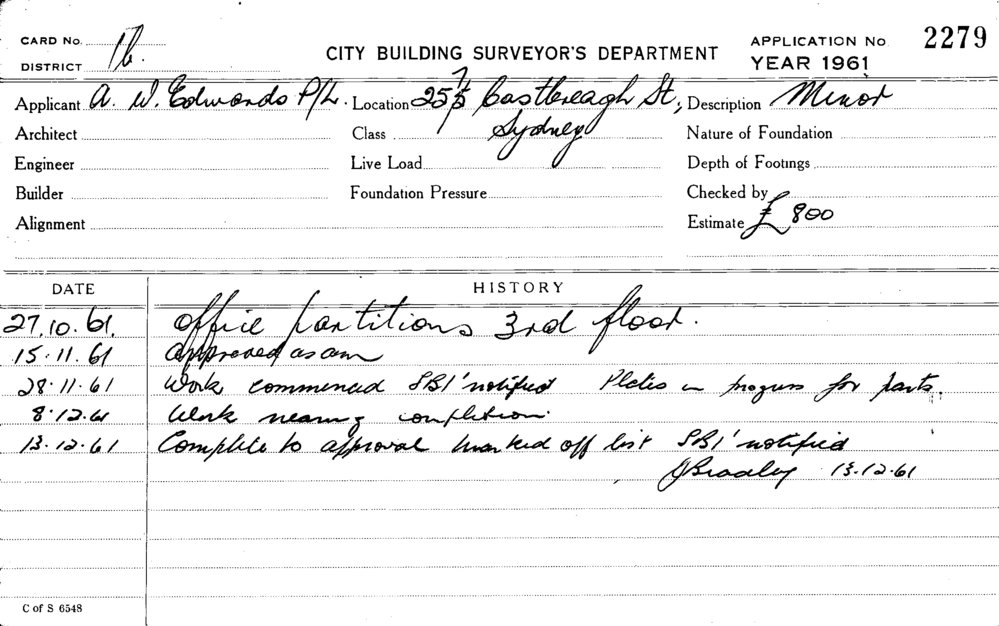 CARD No. 1b.
DISTRICT
CITY BUILDING SURVEYOR'S DEPARTMENT
APPLICATION No 2279
YEAR 1961
Applicant A. W. Edwards P/L. Location Castlereagh St, Sydney Description Minor
Architect Class Nature of Foundation
Engineer Live Load Depth of Footings
Builder Foundation Pressure Checked by
Alignment Estimate £ 800
DATE HISTORY
27.10.61. Office partitions 3rd floor.
15.11.61 Approved as am
28.11.61 Work commenced SBI' notified in progress for parts.
8.12.61 Work nearing completion.
13.12.61 Complete to approval marked off list SBI' notified
JBradley 13.12.61
C of S 6548